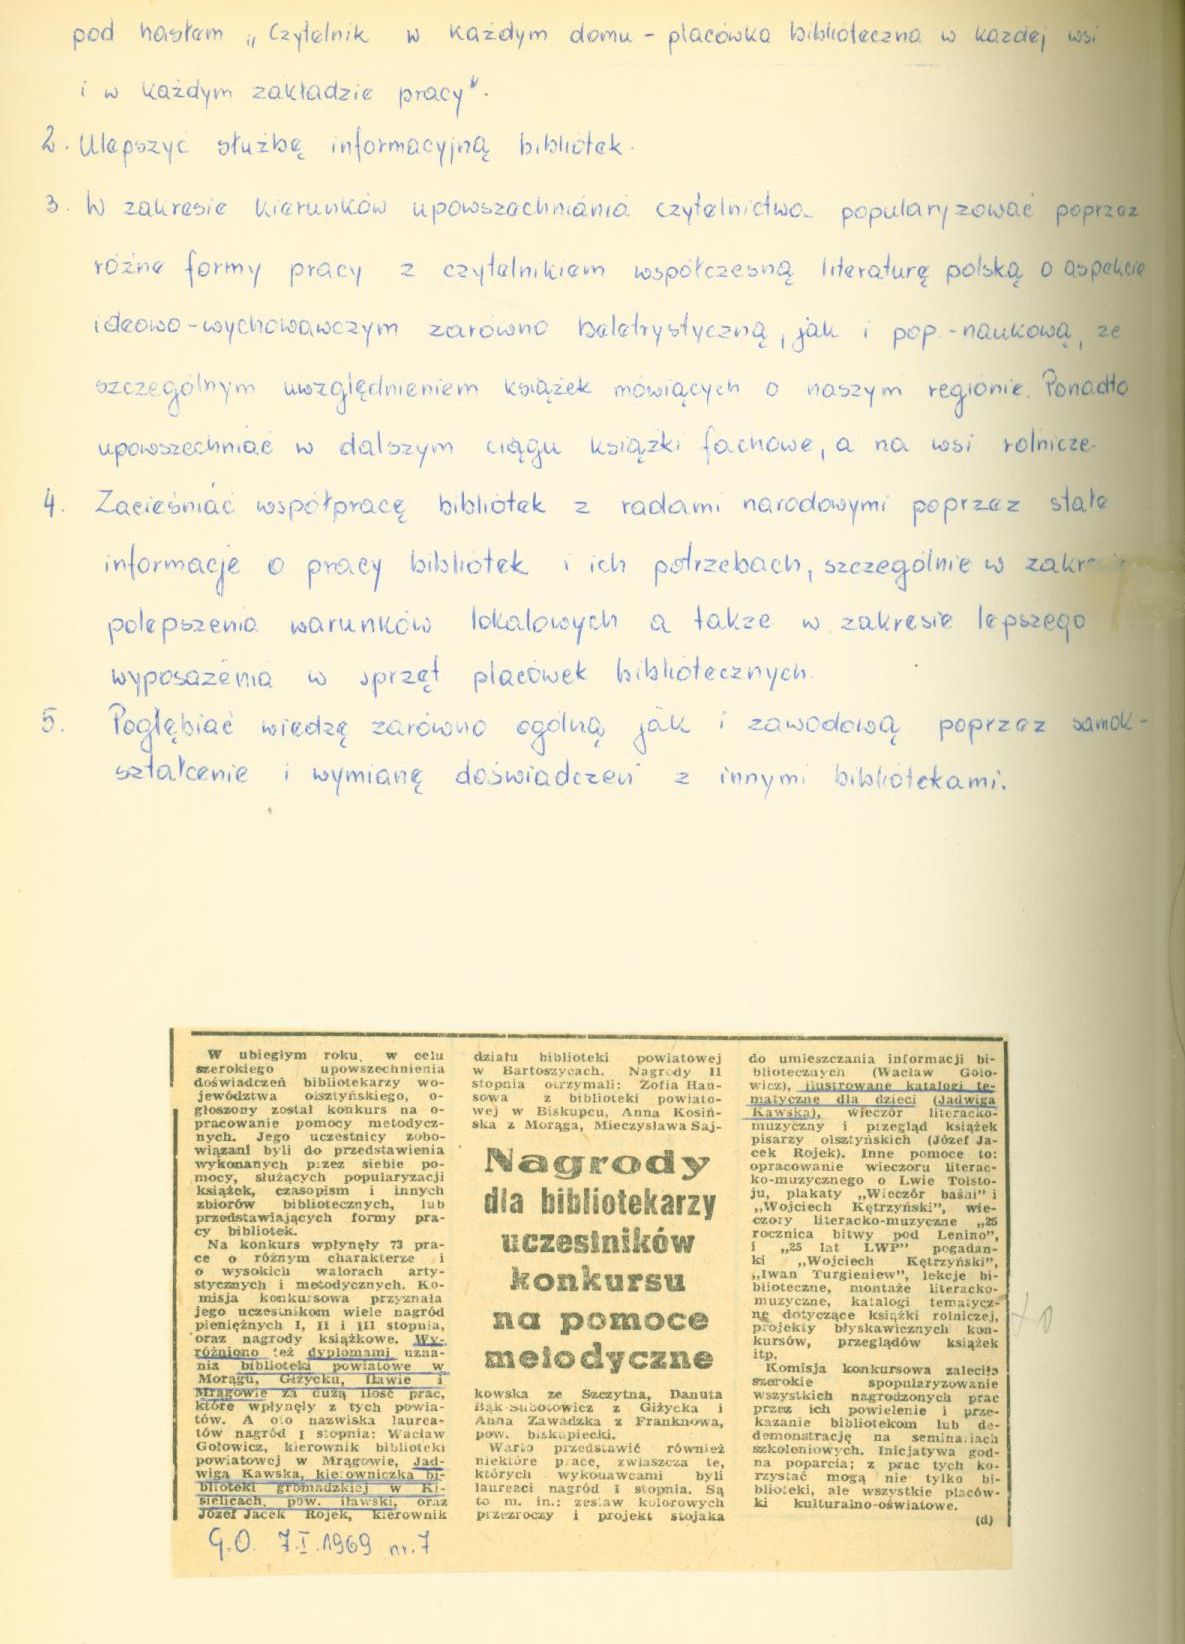 pod hasłem „Czytelnik w każdym domu - placówka biblioteczna w każdej wsi
i w każdym zakładzie pracy".
2. Ulepszyć służbę informacyjną bibliotek.
3. W zakresie kierunków upowszechniania czytelnictwa popularyzować poprzez
różne formy pracy z czytelnikiem współczesną literaturę polską o aspekcie
ideowo-wychowawczym zarówno beletrystyczną, jak i pop.-naukową, ze
szczególnym uwzględnieniem książek mówiących o naszym regionie. Ponadto
upowszechniać w dalszym ciągu książki fachowe, a na wsi rolnicze.
4. Zacieśniać współpracę bibliotek z radami narodowymi poprzez stałe
informacje o pracy bibliotek i ich potrzebach, szczególnie w
polepszenia warunków lokalowych a także w zakresie lepszego
wyposażenia w sprzęt placówek bibliotecznych.
5. Pogłębiać wiedzę zarówno ogólną jak i zawodową poprzez samok-
ształcenie i wymianę doświadczeń z innymi bibliotekami.
W ubiegłym roku, w celu
szerokiego upowszechnienia
doświadczeń bibliotekarzy wo-
jewództwa olsztyńskiego, o-
głoszony został konkurs na o-
pracowanie pomocy metodycz-
nych. Jego uczestnicy zobo-
wiązani byli do przedstawienia
wykonanych przez siebie po-
mocy, służących popularyzacji
książek, czasopism i innych
zbiorów bibliotecznych, lub
przedstawiających formy pra-
cy bibliotek.
Na konkurs wpłynęły 73 pra-
ce o różnym charakterze i
o wysokich walorach arty-
stycznych i metodycznych. Ko-
misja konkursowa przyznała
jego uczestnikom wiele nagród
pieniężnych I, II i III stopnia,
oraz nagrody książkowe. Wy-
różniono też dyplomami uzna-
nia biblioteki powiatowe w
Morągu, Giżycku, Iławie i
Mrągowie za dużą ilość prac,
które wpłynęły z tych powia-
tów. A oto nazwiska laurea-
tów nagród I stopnia: Wacław
Gołowicz, kierownik biblioteki
powiatowej w Mrągowie, Jad-
wiga Kawska, kierowniczka bi-
blioteki gromadzkiej w Ki-
sielicach, pow. iławski, oraz
Józef Jacek Rojek, kierownik
działu biblioteki powiatowej
w Bartoszycach. Nagrody II
stopnia otrzymali: Zofia Han-
sowa z biblioteki powiato-
wej w Biskupcu, Anna Kosiń-
ska z Morąga, Mieczysława Saj-
Nagrody
dla bibliotekarzy
uczestników
konkursu
na pomoce
metodyczne
kowska ze Szczytna, Danuta
Bąk-Subotowicz z Giżycka i
Anna Zawadzka z Franknowa,
pow. biskupiecki.
Warto przedstawić również
niektóre prace, zwłaszcza te,
których wykonawcami byli
laureaci nagród I stopnia. Są
to m. in.: zestaw kolorowych
przezroczy i projekt stojaka
do umieszczania informacji bi-
bliotecznych (Wacław Goło-
wicz), ilustrowane katalogi te-
matyczne dla dzieci (Jadwiga
Kawska), wieczór literacko-
muzyczny i przegląd książek
pisarzy olsztyńskich (Józef Ja-
cek Rojek). Inne pomoce to:
opracowanie wieczoru literac-
ko-muzycznego o Lwie Tołsto-
ju, plakaty „Wieczór baśni" i
„Wojciech Kętrzyński", wie-
czory literacko-muzyczne „25
rocznica bitwy pod Lenino",
i „25 lat LWP" pogadan-
ki „Wojciech Kętrzyński",
„Iwan Turgieniew", lekcje bi-
blioteczne, montaże literacko-
muzyczne, katalogi tematycz-
ne dotyczące książki rolniczej,
projekty błyskawicznych kon-
kursów, przeglądów książek
itp.
Komisja konkursowa zaleciła
szerokie spopularyzowanie
wszystkich nagrodzonych prac
przez ich powielenie i prze-
kazanie bibliotekom lub de-
demonstrację na seminariach
szkoleniowych. Inicjatywa god-
na poparcia; z prac tych ko-
rzystać mogą nie tylko bi-
blioteki, ale wszystkie placów-
ki kulturalno-oświatowe.
(d)
G.O. 7.I.1969 nr.7